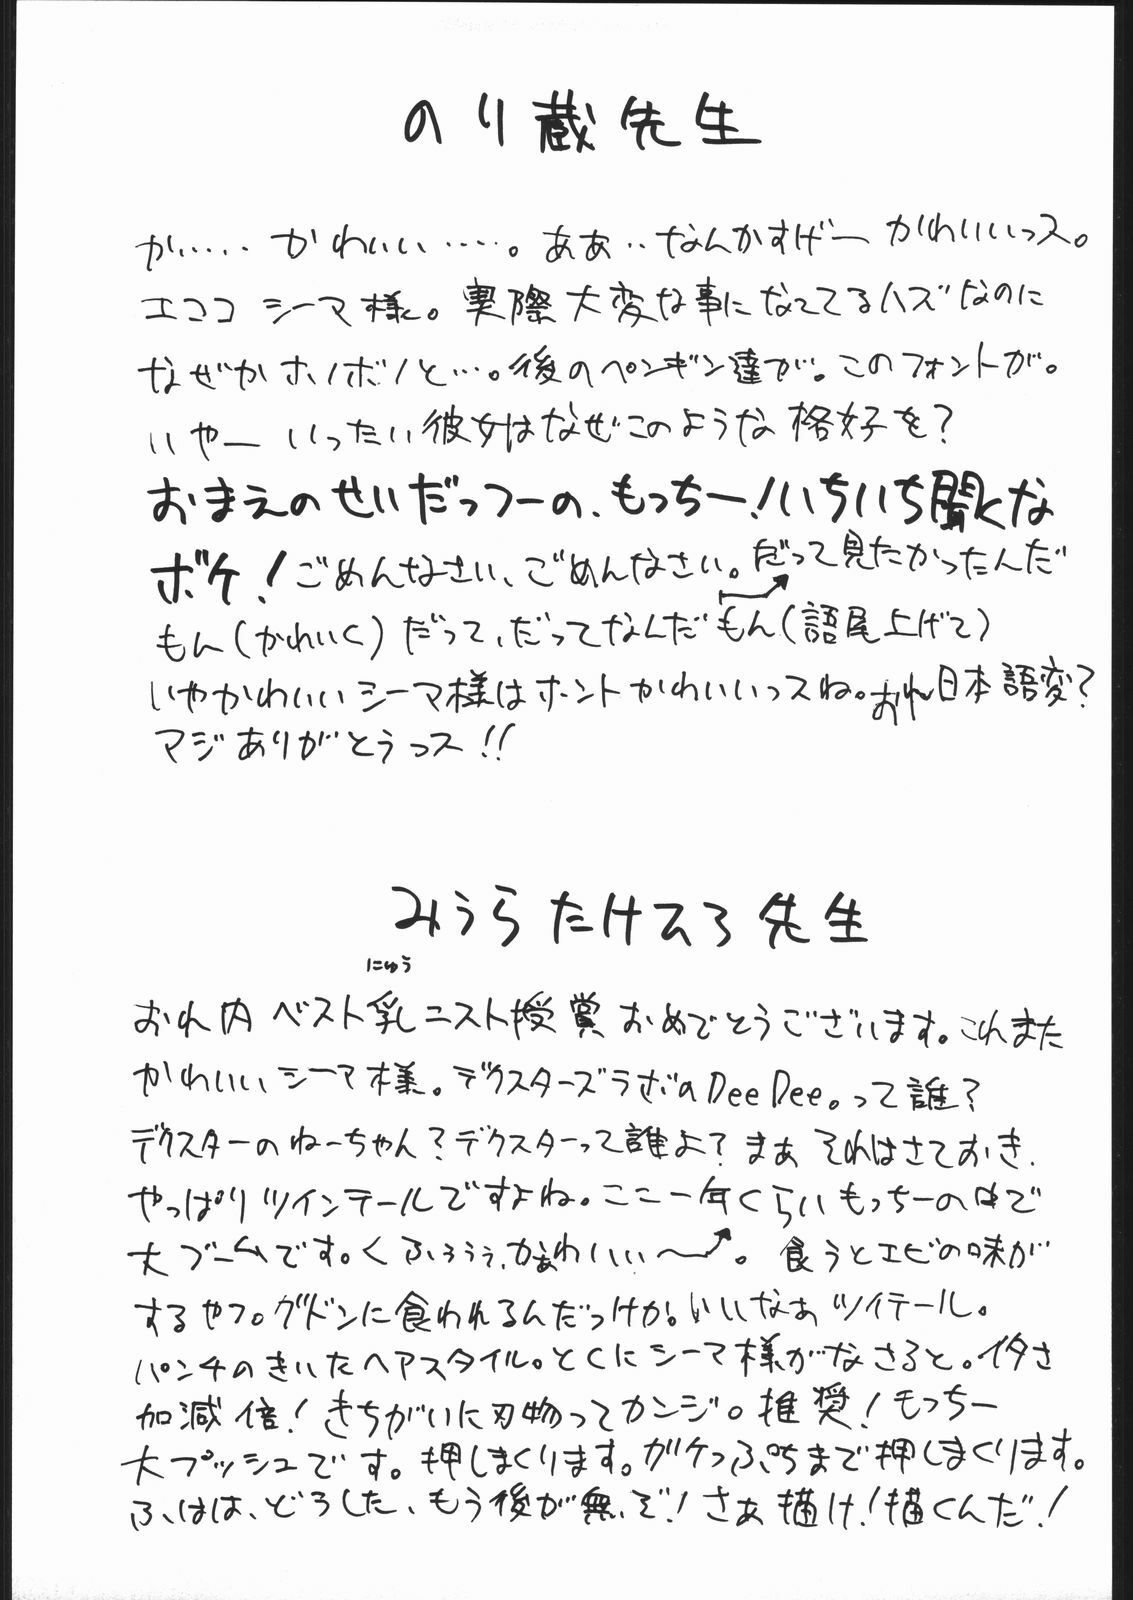 のり蔵先生
か‥‥‥かわいい‥‥‥。ああ‥なんかすげーかわいいっス。
エココ シーマ様。実際大変な事になってるハズなのに
なぜかホノボノと…。後のペンギン達が。このフォントが。
いやー いったい彼女はなぜこのような格好を?
おまえのせいだっつーの、もっちー!いちいち聞くな
ボケ!ごめんなさい、ごめんなさい。だって見たかったんだ
もん(かわいく)だって、だってなんだもん(語尾上げて)
いやかわいいシーマ様はホントかわいいっスね。おれ日本語変?
マジありがとうっス!!
みうらたけひろ先生
にゅう
おれ内ベスト乳ニスト授賞おめでとうございます。これまた
かわいいシーマ様。デクスターズラボのDee Dee。って誰?
デクスターのねーちゃん?デクスターって誰よ?まぁそれはさておき、
やっぱりツインテールですよね。ここ一年くらいもっちーの中で
大ブームです。くふぅぅぅ、かぁわいいい〜。食うとエビの味が
するやつ。グドンに食われるんだっけか。いいなぁツイテール。
パンチのきいたヘアスタイル。とくにシーマ様がなさると。イタさ
加減倍!きちがいに刃物ってカンジ。推奨!もっちー
大プッシュです。押しまくります。ガケっぷちまで押しまくります。
ふはは、どうした、もう後が無いぞ!さぁ描け!描くんだ!